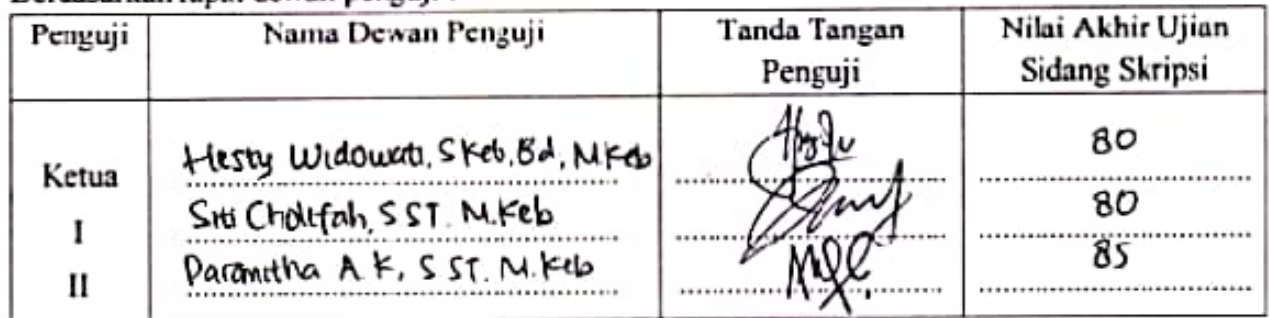 Penguji Nama Dewan Penguji Tanda Tangan Penguji Nilai Akhir Ujian Sidang Skripsi
Ketua Hesty Widowati, SKeb, Bd, MKeb 80
I Siti Cholifah, SST. M.Keb 80
II Paramitha A K, S ST. M. Keb 85